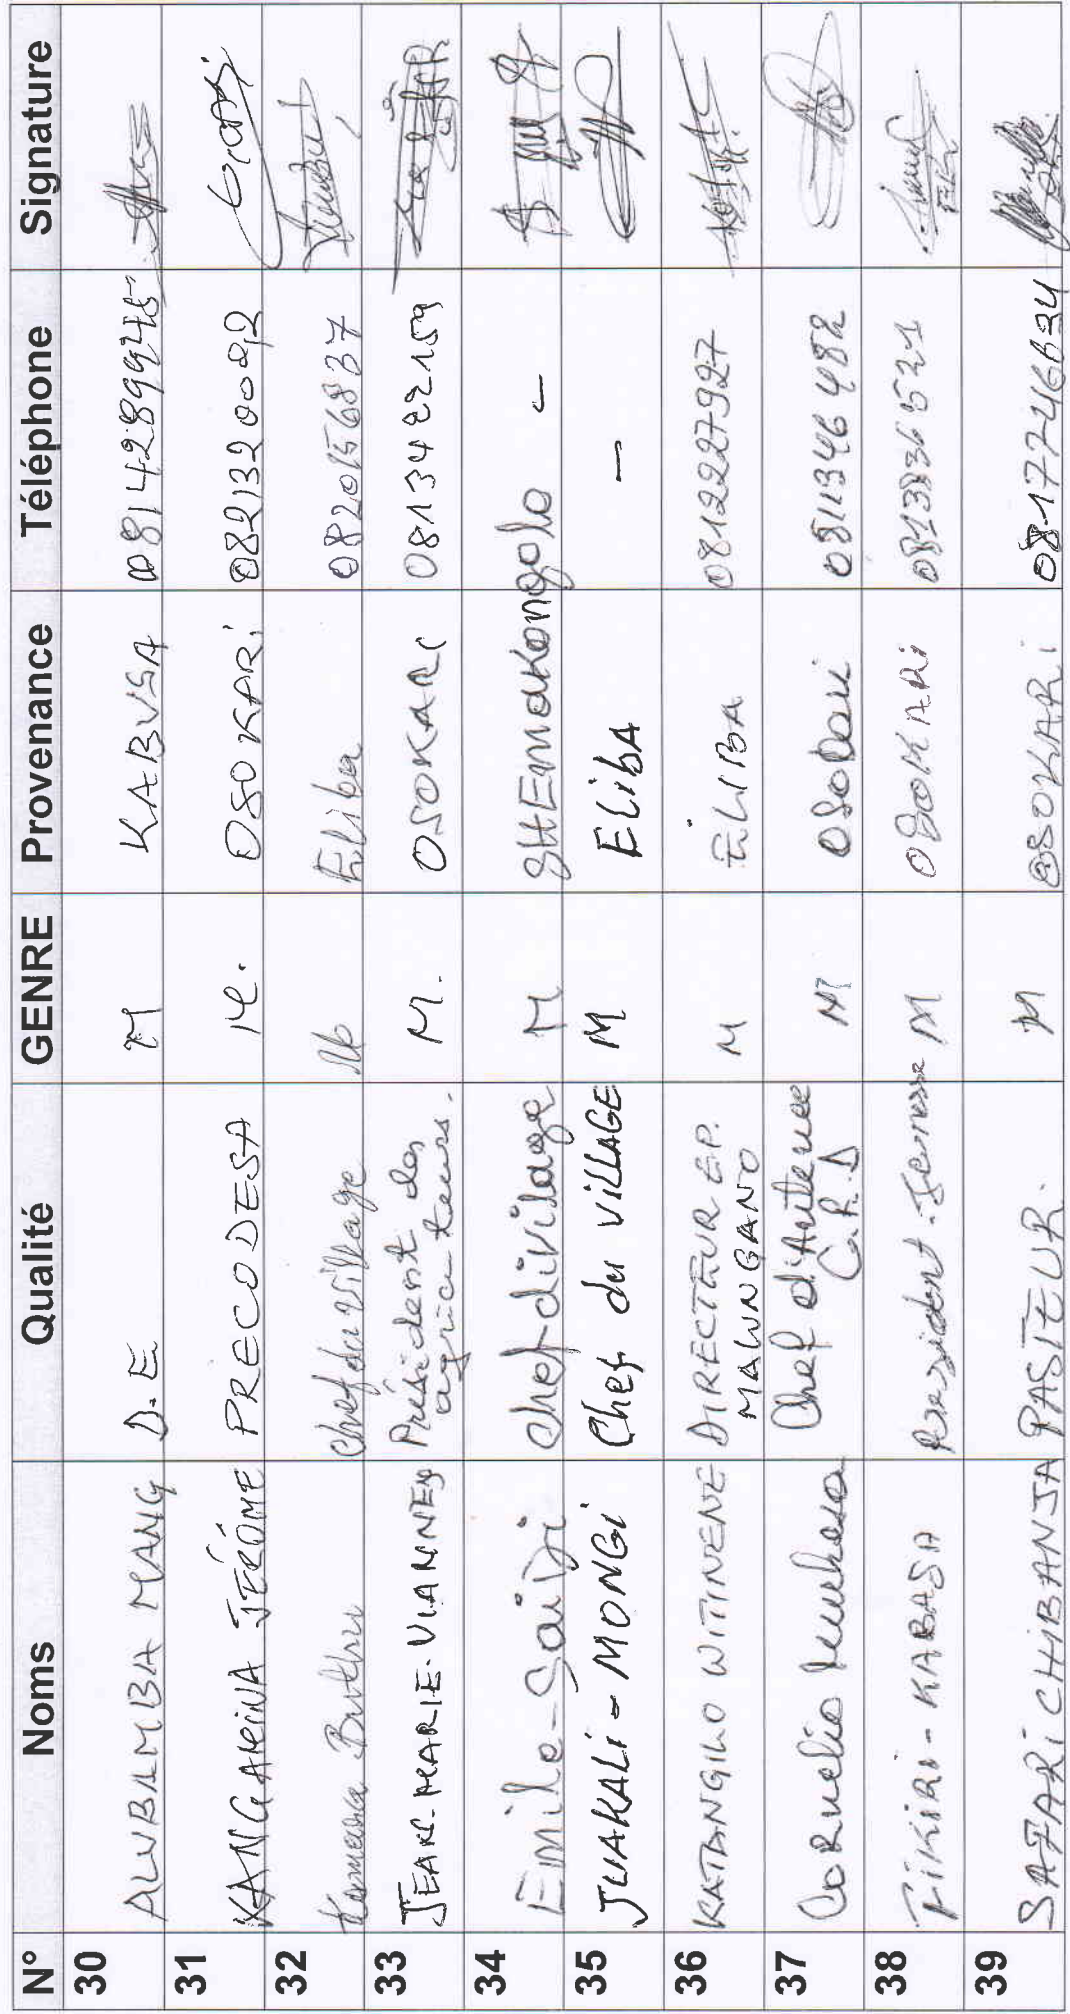 N° Noms Qualité GENRE Provenance Téléphone Signature
30 ALUBAMBA MANG D.E M KABUSA 0814289945
31 KANGAMINA JÉRÔME PRECODESA M. OSOKARI 0821320082
32 Buthu Chef du Village M Eliba 0820156837
33 JEAN-MARIE-VIANNEY Président des agriculteurs. M. OSOKARI 0813422159
34 Emile-Saidi chef divilage M SHEmakongolo -
35 JUAKALI-MONGi Chef du ViLLAGE M ELibA -
36 KATANGILO WITINENE DIRECTEUR EP. MALUNGANO M ELIBA 0812227927
37 Cornelio Chef d'Antenne C.R.D M Osokari 0811346482
38 FiKiRi-KABASA President Jeunesse M OSOKARi 0813836521
39 SAFARi CHiBANJA PASTEUR. M OSOKARi 0817746634